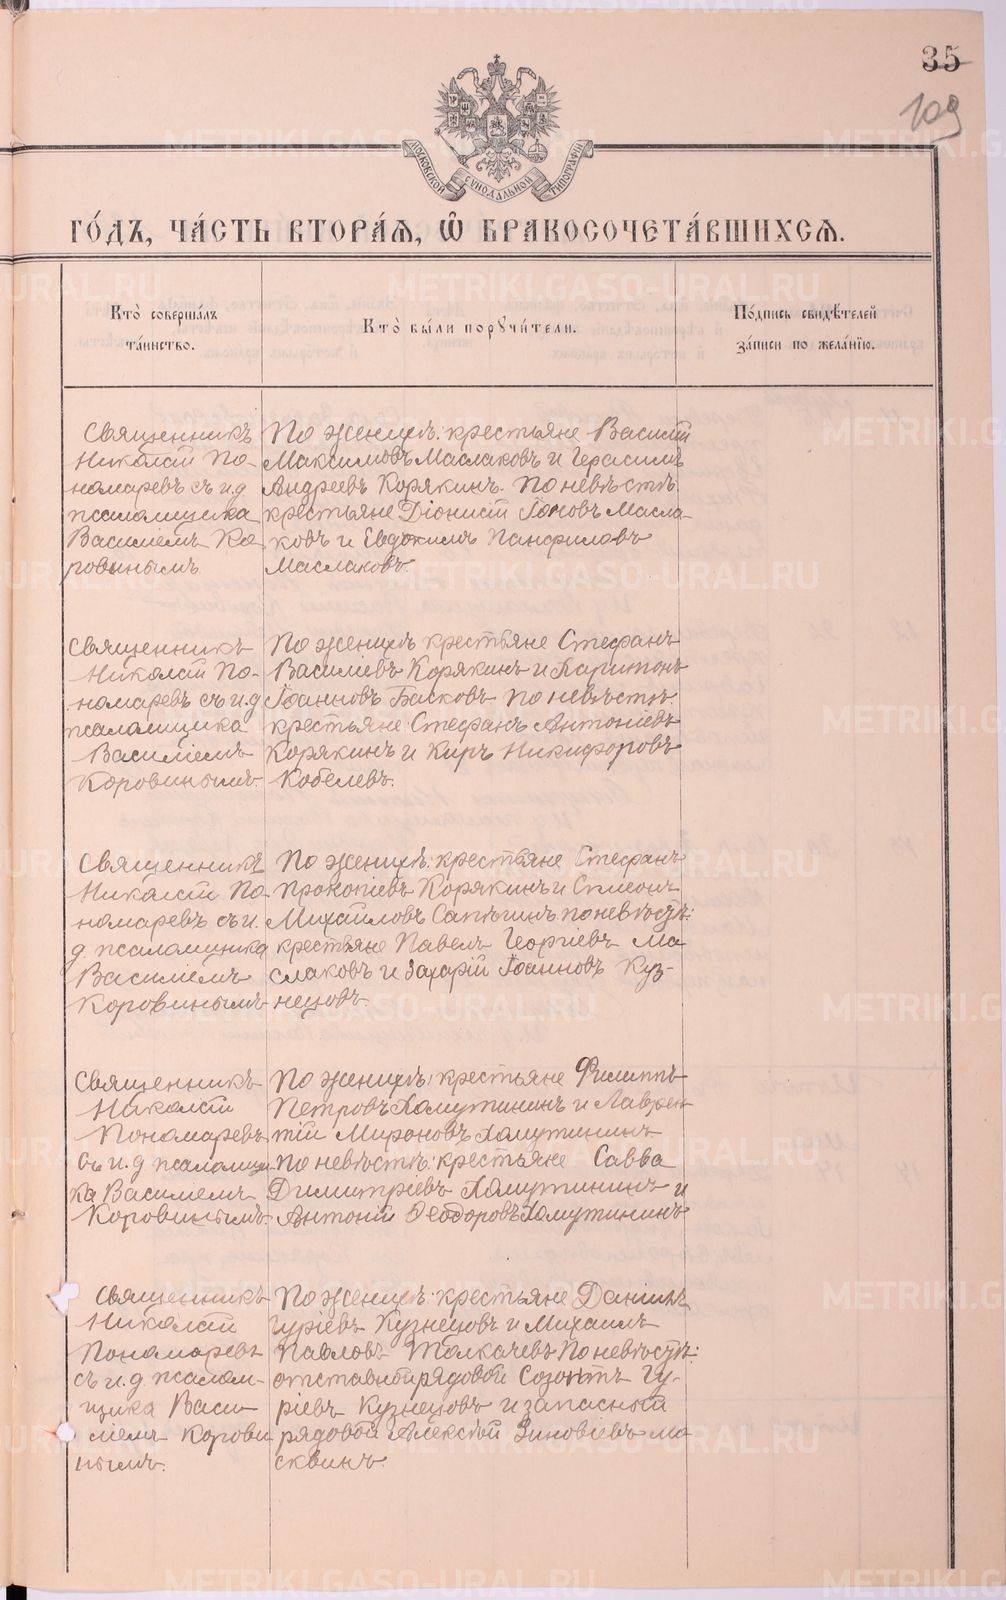 35
109
МОСКОВСКОЙ СѴНОДАЛЬНОЙ ТИПОГРАФІИ
ГО́ДЪ, ЧА́СТЬ ВТОРА́Я, Ѡ҆ БРАКОСОЧЕТА́ВШИХСЯ.
Кто̀ соверша́лъ
та́инство.
Кто̀ бы́ли порꙋчи́тели.
По́дпись свидѣ́телей
за́писи по жела́нїю.
Священникъ
Николай По-
номаревъ съ и.д
псаломщика
Василіемъ Ко
ровинымъ
По женихѣ: крестьяне Василій
Максимовъ Маслаковъ и Герасимъ
Андреевъ Корякинъ. По невѣстѣ
крестьяне Діонисій Іоновъ Масла-
ковъ и Евдокимъ Панфиловъ
Маслаковъ.
Священникъ
Николай По-
номаревъ съ и.д
псаломщика
Василіемъ
Коровинымъ.
По женихѣ крестьяне Стефанъ
Василіевъ Корякинъ и Харитонъ
Іоанновъ Басковъ По невѣстѣ:
крестьяне Стефанъ Антоніевъ
Корякинъ и Киръ Никифоровъ
Кобелевъ.
Священникъ
Николай По
номаревъ съ и.
д. псаломщика
Василіемъ
Коровинымъ
По женихѣ: крестьяне Стефанъ
Прокопіевъ Корякинъ и Симеонъ
Михайловъ Сапѣгинъ по невѣстѣ:
крестьяне Павелъ Георгіевъ Ма
слаковъ и Захарій Іоанновъ Куз-
нецовъ.
Священникъ
Николай
Пономаревъ
съ и.д псаломщи
ка Василіемъ
Коровинымъ.
По женихѣ: крестьяне Филиппъ
Петровъ Хамутининъ и Лаврен
тій Мироновъ Хамутининъ
По невѣстѣ: крестьяне Савва
Димитріевъ Хамутининъ и
Антоній Ѳеодоровъ Хамутининъ
Священникъ
Николай
Пономаревъ
съ и.д псалом-
щика Васи
ліемъ Корови
нымъ.
По женихѣ: крестьяне Даніилъ
Гуріевъ Кузнецовъ и Михаилъ
Павловъ Толкачевъ По невѣстѣ:
отставной рядовой Созонтъ Гу-
ріевъ Кузнецовъ и запасной
рядовой Алексѣй Зиновіевъ мо
сквинъ.
METRIKI.GASO-URAL.RU